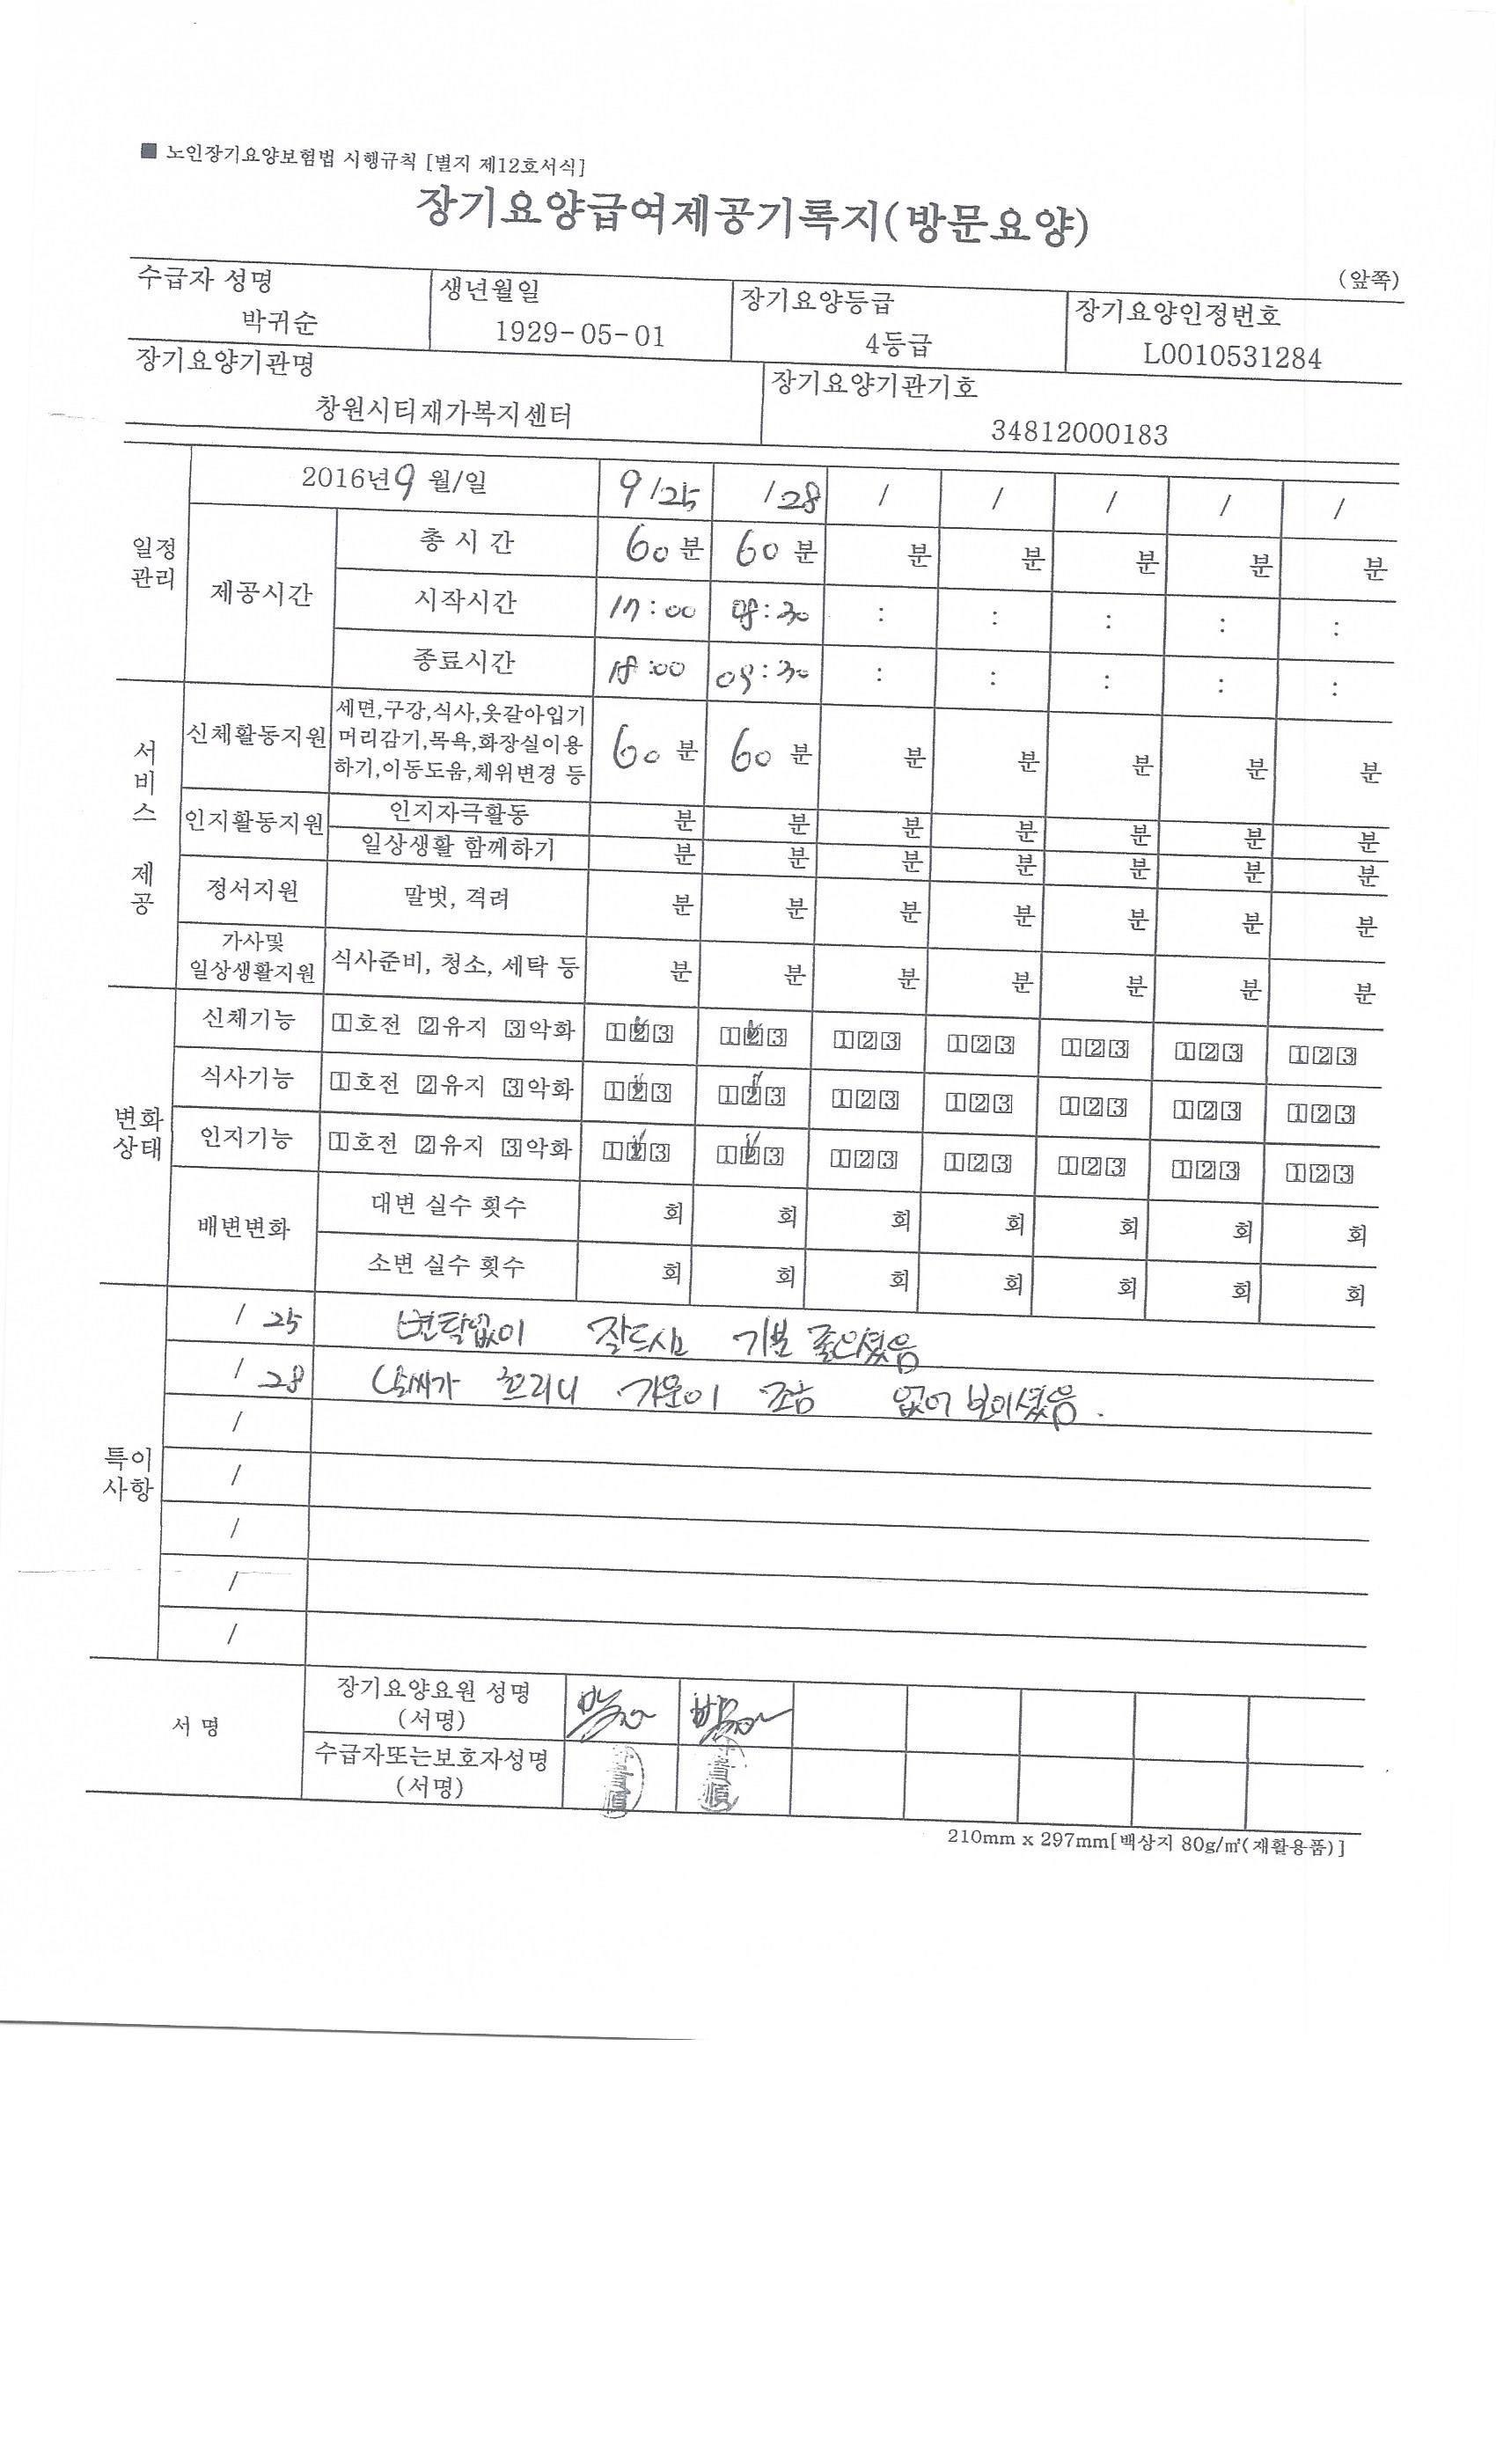 ■ 노인장기요양보험법 시행규칙 [별지 제12호서식]
장기요양급여제공기록지(방문요양)
(앞쪽)
수급자 성명 생년월일 장기요양등급 장기요양인정번호
박귀순 1929-05-01 4등급 L0010531284
장기요양기관명 장기요양기관기호
창원시티재가복지센터 34812000183
일정관리 2016년 9 월/일 9/25 /28 / / / / /
제공시간 총 시 간 60 분 60 분 분 분 분 분 분
시작시간 17:00 08:30 : : : : :
종료시간 18:00 09:30 : : : : :
서비스 제공
신체활동지원 세면,구강,식사,옷갈아입기
머리감기,목욕,화장실이용 60 분 60 분 분 분 분 분 분
하기,이동도움,체위변경 등
인지활동지원 인지자극활동 분 분 분 분 분 분 분
일상생활 함께하기 분 분 분 분 분 분 분
정서지원 말벗, 격려 분 분 분 분 분 분 분
가사및
일상생활지원 식사준비, 청소, 세탁 등 분 분 분 분 분 분 분
변화상태
신체기능 1호전 2유지 3악화 1 2 3 1 2 3 1 2 3 1 2 3 1 2 3 1 2 3 1 2 3
식사기능 1호전 2유지 3악화 1 2 3 1 2 3 1 2 3 1 2 3 1 2 3 1 2 3 1 2 3
인지기능 1호전 2유지 3악화 1 2 3 1 2 3 1 2 3 1 2 3 1 2 3 1 2 3 1 2 3
배변변화 대변 실수 횟수 회 회 회 회 회 회 회
소변 실수 횟수 회 회 회 회 회 회 회
특이사항
/ 25 변탈없이 잘드시고 기분 좋으셨음
/ 28 날씨가 흐리니 기운이 조금 없어 보이셨음.
/
/
/
/
/
서 명 장기요양요원 성명
(서명)
수급자또는보호자성명
(서명)
210mm x 297mm[백상지 80g/㎡(재활용품)]